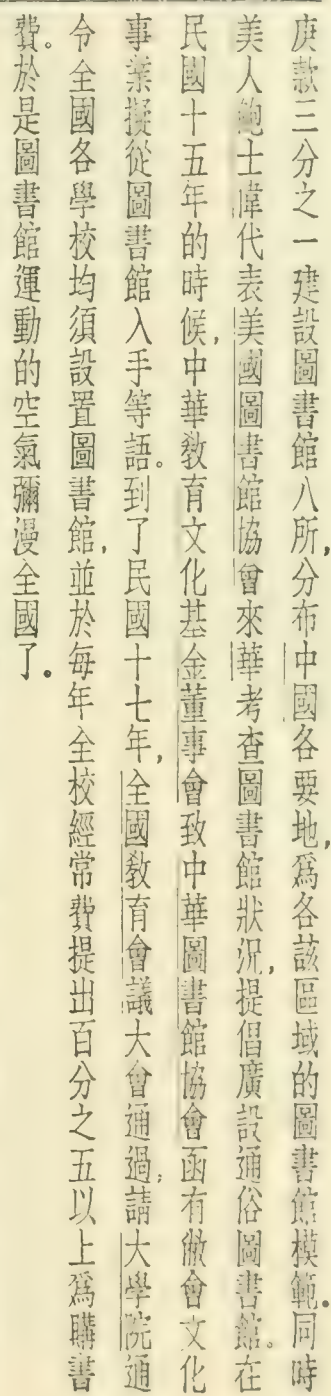 庚款三分之一建設圖書館八所，分布中國各要地，爲各該區域的圖書館模範。同時
美人鮑士偉代表美國圖書館協會來華考查圖書館狀況，提倡廣設通俗圖書館。在
民國十五年的時候，中華敎育文化基金董事會致中華圖書館協會函有敝會文化
事業擬從圖書館入手等語。到了民國十七年，全國敎育會議大會通過；請大學院通
令全國各學校均須設置圖書館，並於每年全校經常費提出百分之五以上爲購書
費。於是圖書館運動的空氣彌漫全國了。